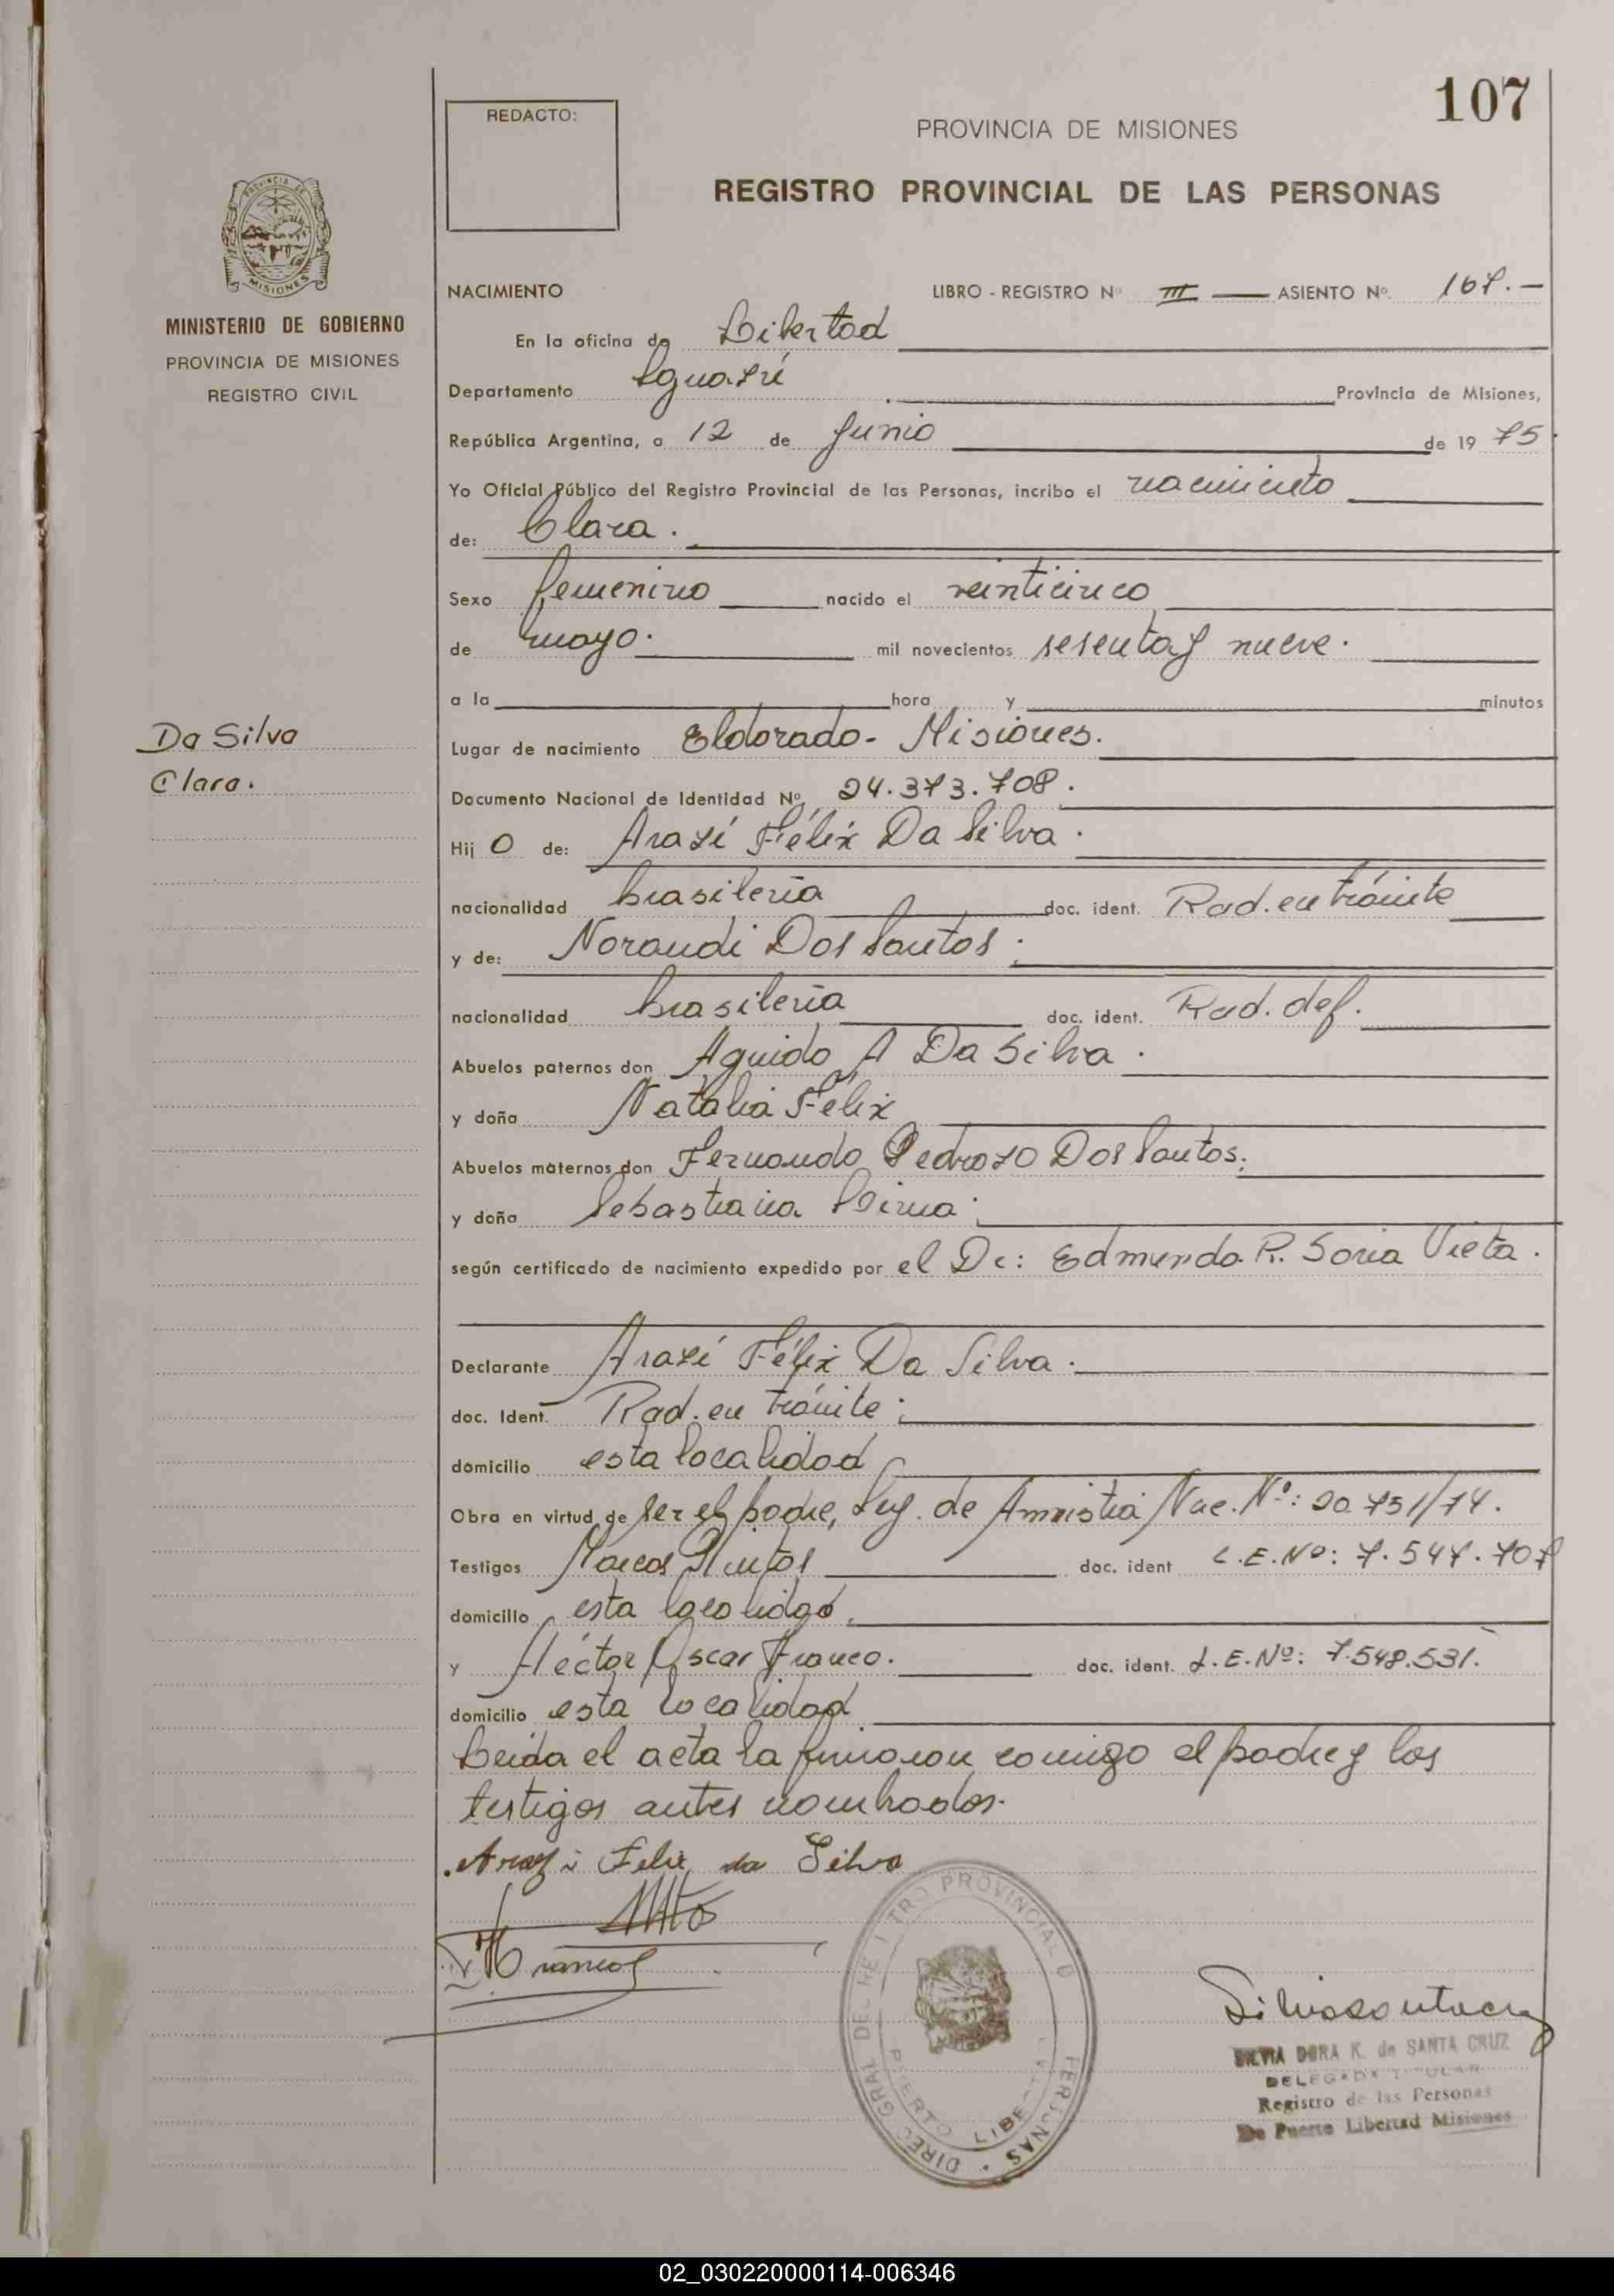 107
REDACTO:
PROVINCIA DE MISIONES
REGISTRO PROVINCIAL DE LAS PERSONAS
PROVINCIA DE MISIONES
MINISTERIO DE GOBIERNO
PROVINCIA DE MISIONES
REGISTRO CIVIL
NACIMIENTO LIBRO - REGISTRO Nº III ASIENTO Nº. 167.-
En la oficina de Libertad
Departamento Iguazú Provincia de Misiones,
República Argentina, a 12 de Junio de 1975.
Yo Oficial Público del Registro Provincial de las Personas, incribo el nacimiento
de: Clara.
Sexo femenino nacido el veinticinco
de mayo. mil novecientos sesenta y nueve.
a la hora y minutos
Da Silva
Clara.
Lugar de nacimiento Eldorado - Misiones.
Documento Nacional de Identidad Nº 24.373.708.
Hij O de: Arazí Félix Da Silva.
nacionalidad brasileña doc. ident. Rad. en trámite
y de: Norandi Dos Santos.
nacionalidad brasileña doc. ident. Rad. def.
Abuelos paternos don Aguido A Da Silva.
y doña Natalia Félix
Abuelos maternos don Fernando Pedrozo Dos Santos.
y doña Sebastiana
según certificado de nacimiento expedido por el Dr: Edmundo R. Soria Vieta.
Declarante Arazí Félix Da Silva.
doc. Ident. Rad. en trámite.
domicilio esta localidad
Obra en virtud de ser el padre, Ley. de Amnistía Nac. Nº: 20.751/74.
Testigos Marcos doc. ident L.E.Nº: 7.547.707
domicilio esta localidad.
y Héctor Oscar Franco. doc. ident. L.E.Nº: 7.548.531.
domicilio esta localidad
Leida el acta la firmaron conmigo el padre y los
testigos antes nombrados.
Arazi Felix da Silva
DIREC GRAL DEL REGISTRO PROVINCIAL DE PERSONAS
PUERTO LIBERTAD
SILVIA DORA K. de SANTA CRUZ
DELEGADA TITULAR
Registro de las Personas
De Puerto Libertad Misiones
02_030220000114-006346